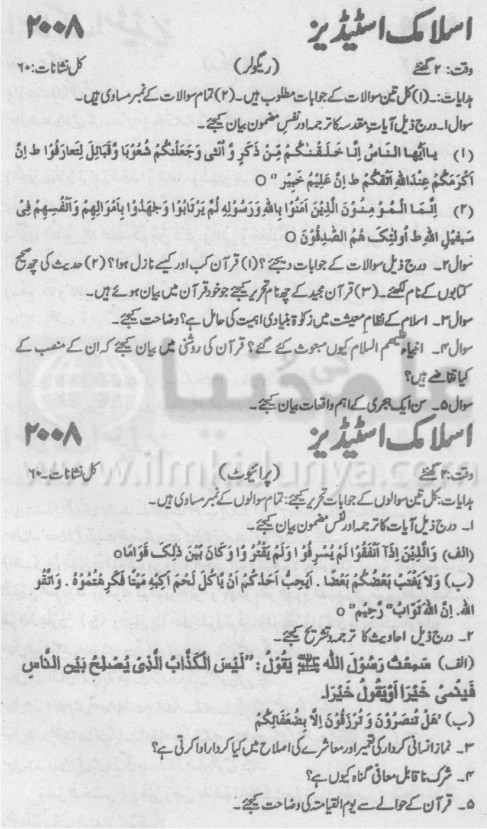 اسلامک اسٹیڈیز ۲۰۰۸
وقت: ۲ گھنٹے (ریگولر) کل نشانات: ۶۰
ہدایات:۔ (۱) کل تین سوالات کے جوابات مطلوب ہیں۔ (۲) تمام سوالات کے نمبر مساوی ہیں۔
سوال۱۔ درج ذیل آیات مقدسہ کا ترجمہ اور نفسِ مضمون بیان کیجئے۔
(۱) يا ايها الناس انا خلقنكم من ذكر و انثى وجعلنكم شعوبا و قبائل لتعارفوا ط ان
اكرمكم عند الله اتقكم ط ان عليم خبير" ○
(۲) انما المومنون الذين امنوا بالله ورسوله لم يرتابوا وجهدوا باموالهم وانفسهم فى
سبيل الله ط اولئك هم الصدقون ○
سوال۲۔ درج ذیل سوالات کے جوابات دیجئے؟ (۱) قرآن کب اور کیسے نازل ہوا؟ (۲) حدیث کی چھ صحیح
کتابوں کے نام لکھئے۔ (۳) قرآن مجید کے چھ نام تحریر کیجئے جو خود قرآن میں بیان ہوئے ہیں۔
سوال۳۔ اسلام کے نظام معیشت میں زکوٰۃ بنیادی اہمیت کی حامل ہے؟ وضاحت کیجئے۔
سوال۴۔ انبیاء علیھم السلام کیوں مبعوث کئے گئے؟ قرآن کی روشنی میں بیان کیجئے کہ ان کے منصب کے
کیا تقاضے ہیں؟
سوال۵۔ سن ایک ہجری کے اہم واقعات بیان کیجئے۔
اسلامک اسٹیڈیز ۲۰۰۸
وقت: ۲ گھنٹے (پرائیوٹ) کل نشانات۔ ۶۰
ہدایات: کل تین سوالوں کے جوابات تحریر کیجئے: تمام سوالوں کے نمبر مساوی ہیں۔
۱۔ درج ذیل آیات کا ترجمہ اور نفس مضمون بیان کیجئے۔
(الف) والذين اذا انفقوا لم يسرفوا ولم يقتروا وكان بين ذلك قواما ○
(ب) ولا يغتب بعضكم بعضا. ايحب احدكم ان ياكل لحم اخيه ميتا فكرهتموه. واتقو
الله. ان الله تواب" رحيم" ○
۲۔ درج ذیل احادیث کا ترجمہ و تشریح کیجئے۔
(الف) سمعت رسول الله ﷺ يقول: "ليس الكذاب الذى يصلح بين الناس
فينمى خيرا او يقول خيرا.
(ب) 'هل تنصرون و ترزقون الا بضعفائكم
۳۔ نماز انسانی کردار کی تعمیر اور معاشرے کی اصلاح میں کیا کردار ادا کرتی ہے؟
۴۔ شرک ناقابل معافی گناہ کیوں ہے؟
۵۔ قرآن کے حوالے سے یوم القیامتہ کی وضاحت کیجئے۔
www.ilmkidunya.com